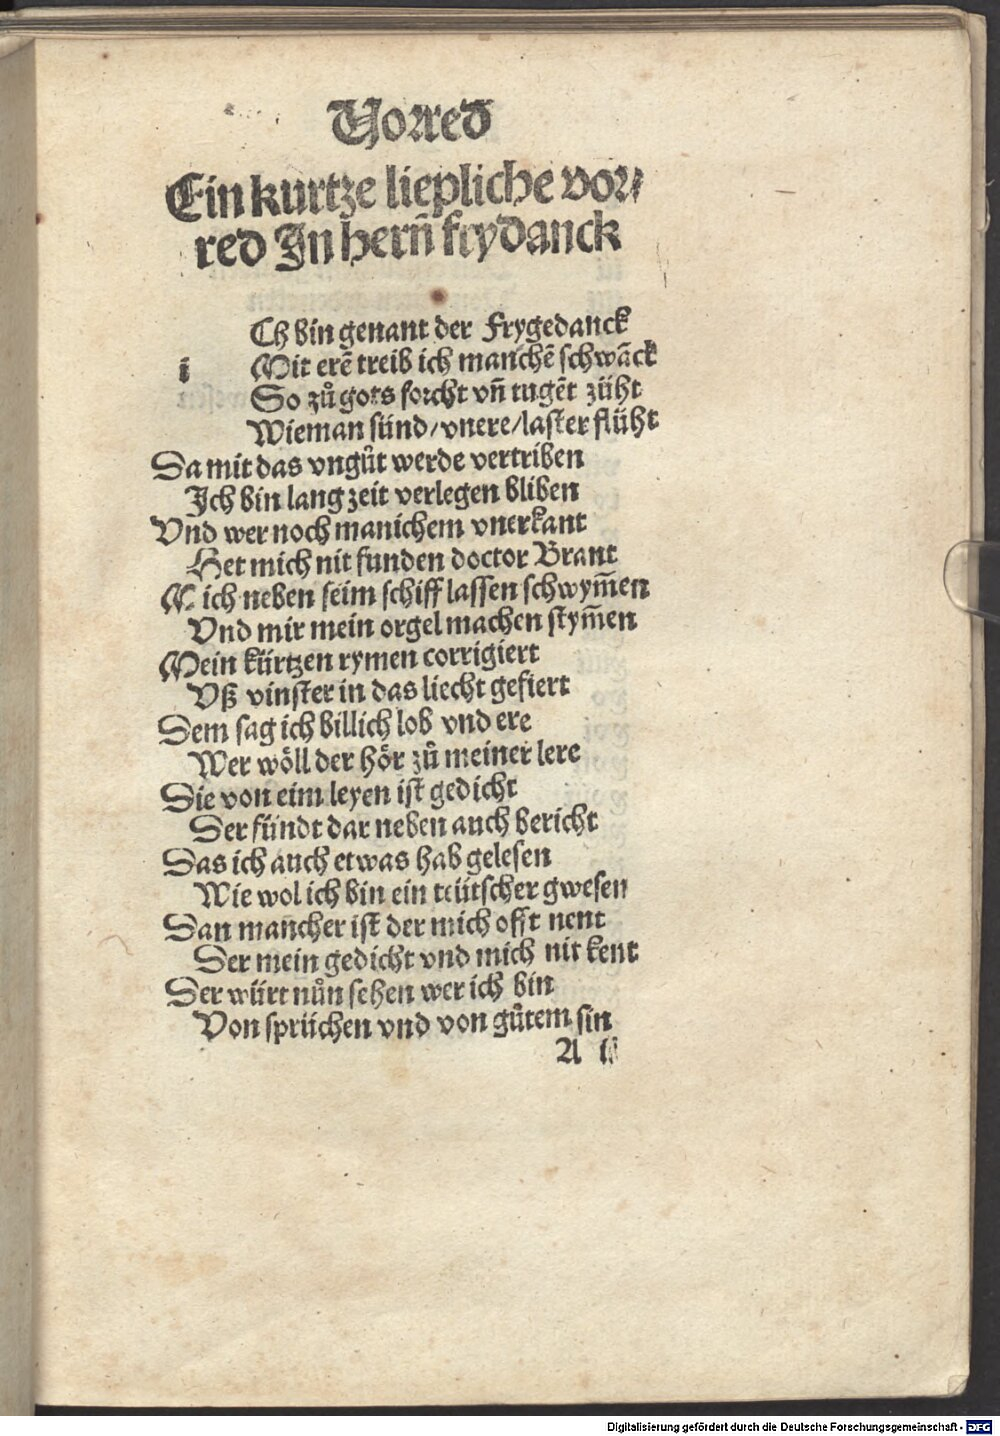 Vorred
Ein kurtze liepliche vor⸗
red In hern̄ frydanck
Ch bin genant der Frygedanck
i Mit erē treib ich manchē schwāck
So zů gots forcht vn̄ tugēt züht
Wieman sünd/vnere/laster flüht
Da mit das vngůt werde vertriben
Ich bin lang zeit verlegen bliben
Vnd wer noch manichem vnerkant
Het mich nit funden doctor Brant
M ich neben seim schiff lassen schwym̄en
Vnd mir mein orgel machen stym̄en
Mein kürtzen rymen corrigiert
Vß vinster in das liecht gefiert
Dem sag ich billich lob vnd ere
Wer wöll der hör zů meiner lere
Die von eim leyen ist gedicht
Der fündt dar neben auch bericht
Das ich auch etwas hab gelesen
Wie wol ich bin ein teütscher gwesen
Dan mancher ist der mich offt nent
Der mein gedicht vnd mich nit kent
Der würt nůn sehen wer ich bin
Von sprüchen vnd von gůtem sin
A
Digitalisierung gefördert durch die Deutsche Forschungsgemeinschaft - DFG